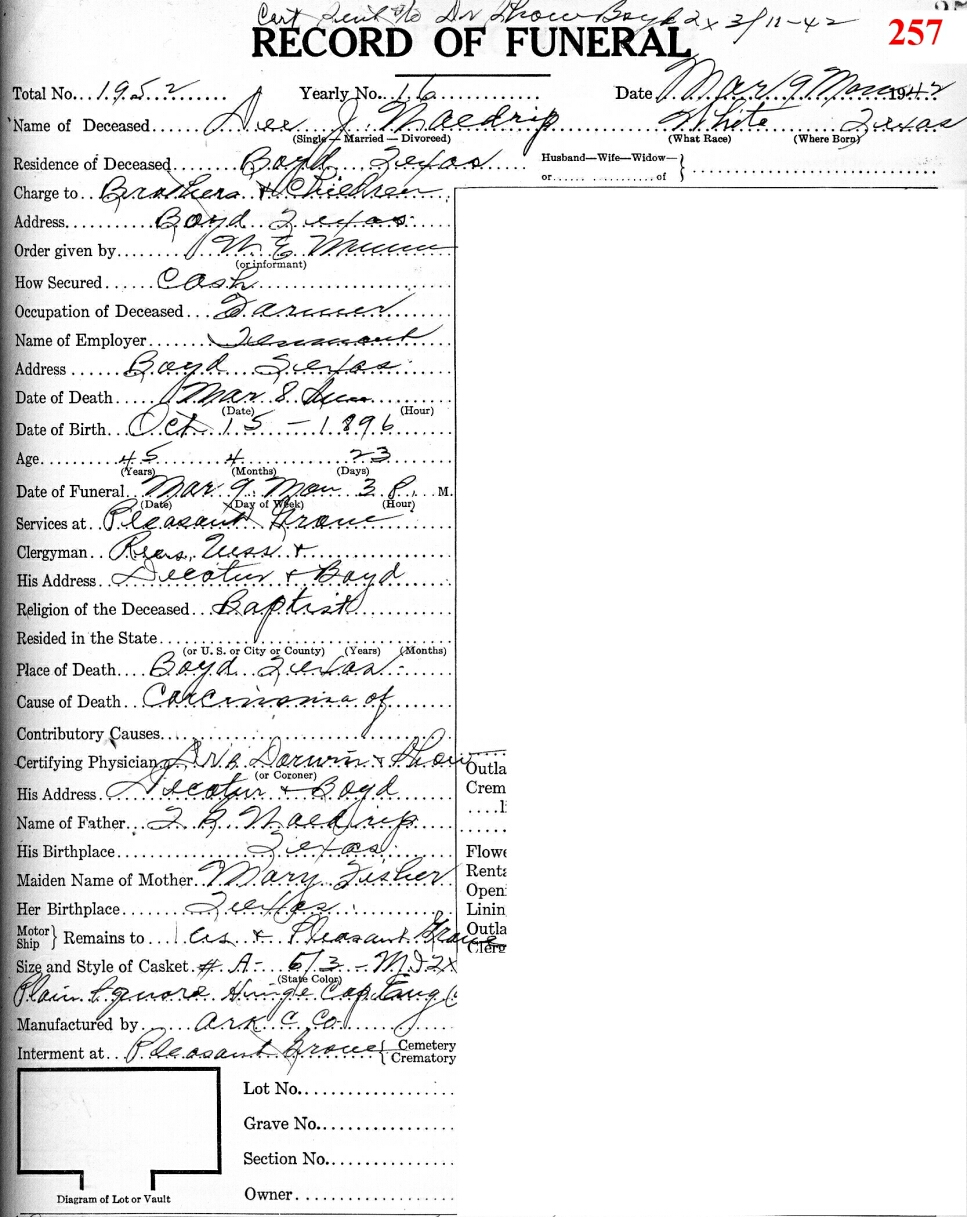 Cert Sent to Dr Thow Boyd 2x 3/11-42
257
RECORD OF FUNERAL
Total No. 1952 Yearly No. 16 Date Mar 9 Mon 1942
Name of Deceased Dee J. Waldrip White Texas
(Single—Married—Divorced) (What Race) (Where Born)
Residence of Deceased Boyd Texas Husband—Wife—Widow—
or of
Charge to Brothers & Children
Address Boyd Texas
Order given by W E
(or informant)
How Secured Cash
Occupation of Deceased Farmer
Name of Employer
Address Boyd Texas
Date of Death Mar 8 Sun
(Date) (Hour)
Date of Birth Oct 15 - 1896
Age 45 4 23
(Years) (Months) (Days)
Date of Funeral Mar 9 Mon 3 P. M.
(Date) (Day of Week) (Hour)
Services at Pleasant Grove
Clergyman Revs. &
His Address Decatur & Boyd
Religion of the Deceased Baptist
Resided in the State
(or U. S. or City or County) (Years) (Months)
Place of Death Boyd Texas -
Cause of Death Carcinoma of
Contributory Causes
Certifying Physician Drs Darwin & Thow
(or Coroner)
His Address Decatur & Boyd
Name of Father Waldrip
His Birthplace Texas
Maiden Name of Mother Mary Fisher
Her Birthplace Texas
Motor Ship Remains to Res. & Pleasant Grove
Size and Style of Casket # A- 6/3 - M I 2X
(State Color)
Plain Square Hinge Cap
Manufactured by Ark C. Co.
Interment at Pleasant Grove Cemetery
Crematory
Lot No.
Grave No.
Section No.
Owner
Diagram of Lot or Vault
Outla
Crem
Flowe
Renta
Open
Linin
Outla
Clerg